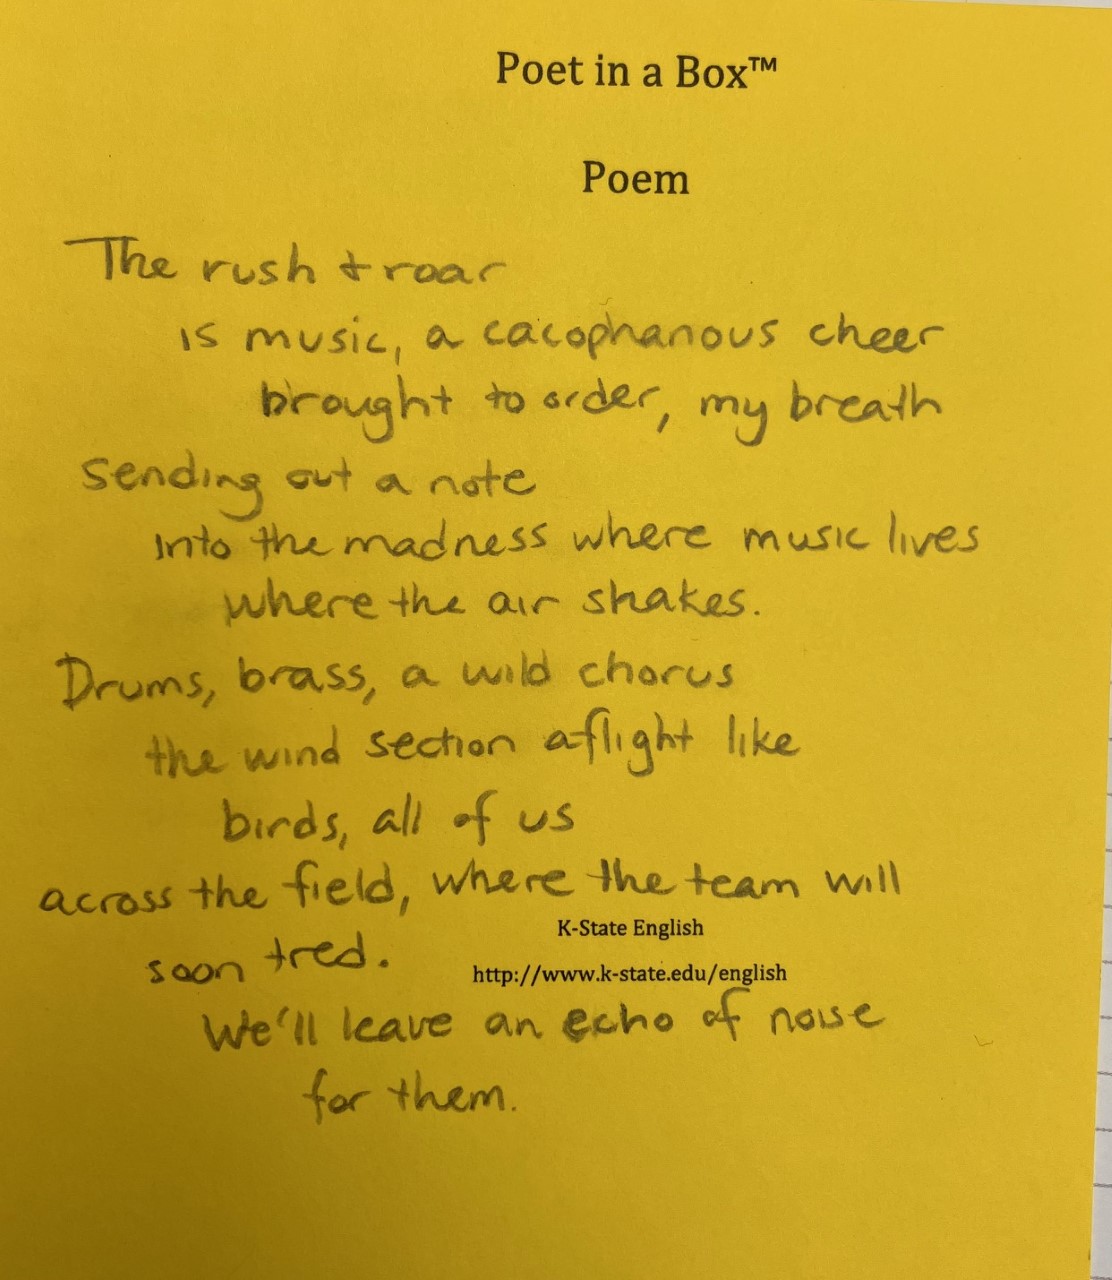 Poet in a Box™
Poem
The rush + roar
is music, a cacophanous cheer
brought to order, my breath
sending out a note
into the madness where music lives
where the air shakes.
Drums, brass, a wild chorus
the wind section aflight like
birds, all of us
across the field, where the team will
K-State English
soon tred.
http://www.k-state.edu/english
We'll leave an echo of noise
for them.